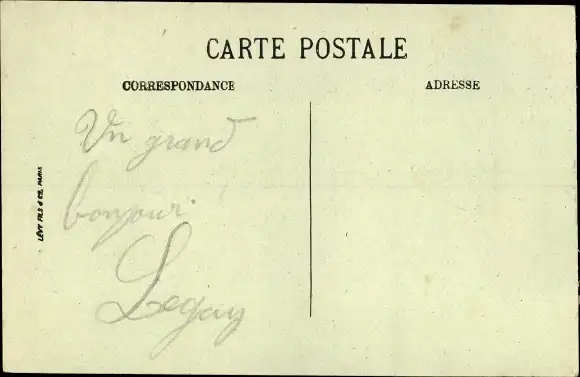 CARTE POSTALE
CORRESPONDANCE
ADRESSE
Un grand
bonjour.
Legay
LÉVY FILS & CIE, PARIS